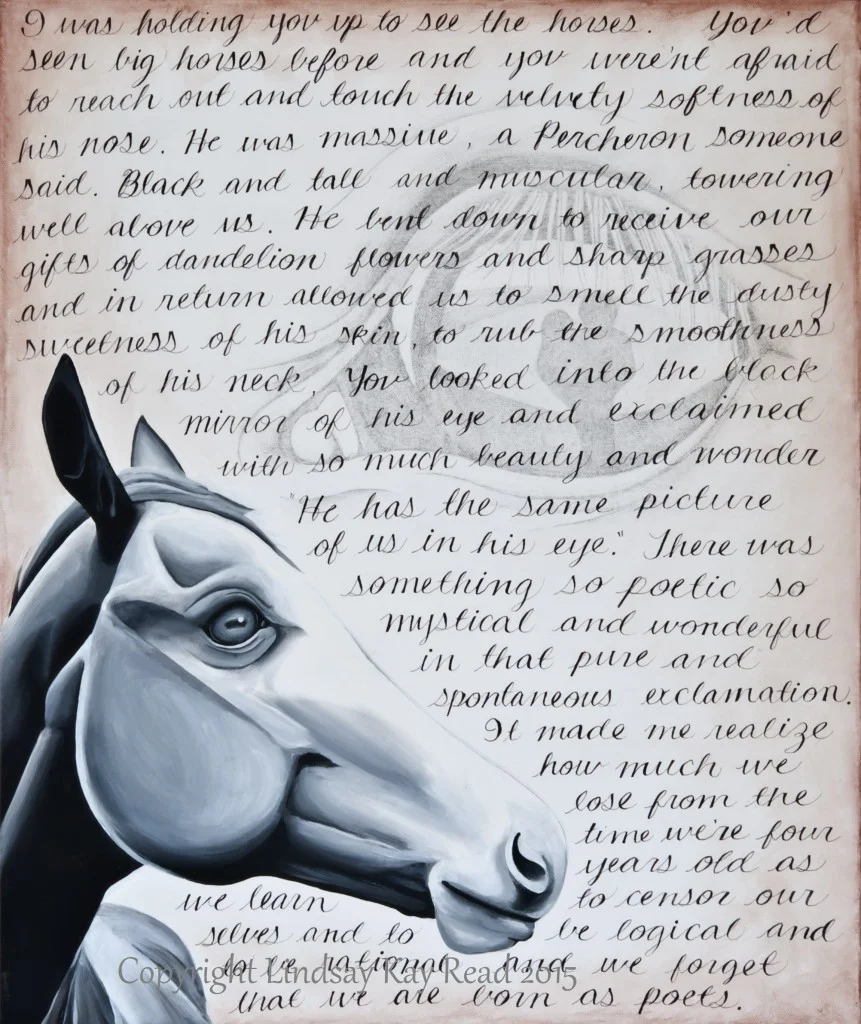 I was holding you up to see the horses. You'd
seen big horses before and you were'nt afraid
to reach out and touch the velvety softness of
his nose. He was massive, a Percheron someone
said. Black and tall and muscular, towering
well above us. He bent down to receive our
gifts of dandelion flowers and sharp grasses
and in return allowed us to smell the dusty
sweetness of his skin, to rub the smoothness
of his neck. You looked into the black
mirror of his eye and exclaimed
with so much beauty and wonder
"He has the same picture
of us in his eye." There was
something so poetic so
mystical and wonderful
in that pure and
spontaneous exclamation.
It made me realize
how much we
lose from the
time we're four
years old as
we learn to censor our
selves and to be logical and
to be rational and we forget
that we are born as poets.
Copyright Lindsay Ray Read 2015